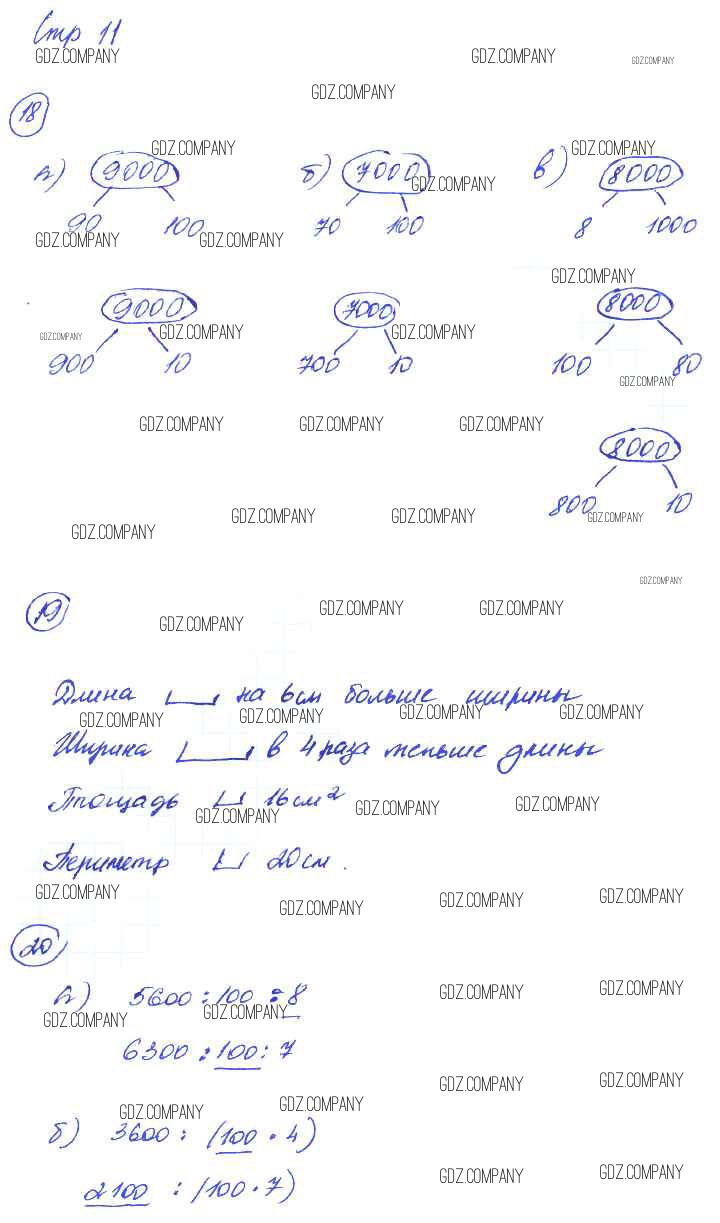 Стр 11
GDZ.COMPANY GDZ.COMPANY GDZ.COMPANY
GDZ.COMPANY
18
GDZ.COMPANY GDZ.COMPANY
а) 9000 б) 7000 в) 8000
GDZ.COMPANY
90 100 70 100 8 1000
GDZ.COMPANY GDZ.COMPANY
GDZ.COMPANY
9000 7000 8000
GDZ.COMPANY GDZ.COMPANY GDZ.COMPANY
900 10 700 10 100 80
GDZ.COMPANY
GDZ.COMPANY GDZ.COMPANY GDZ.COMPANY
8000
800 10
GDZ.COMPANY GDZ.COMPANY GDZ.COMPANY GDZ.COMPANY
GDZ.COMPANY
19
GDZ.COMPANY GDZ.COMPANY GDZ.COMPANY
Длина на 6см больше ширины
GDZ.COMPANY GDZ.COMPANY GDZ.COMPANY GDZ.COMPANY
Ширина в 4 раза меньше длины
Площадь 16 см²
GDZ.COMPANY GDZ.COMPANY GDZ.COMPANY
Периметр 20 см.
GDZ.COMPANY GDZ.COMPANY GDZ.COMPANY GDZ.COMPANY
20
а) 5600 : 100 : 8
GDZ.COMPANY GDZ.COMPANY GDZ.COMPANY GDZ.COMPANY
6300 : 100 : 7
GDZ.COMPANY GDZ.COMPANY
GDZ.COMPANY GDZ.COMPANY
б) 3600 : (100 · 4)
2100 : (100 · 7)
GDZ.COMPANY GDZ.COMPANY